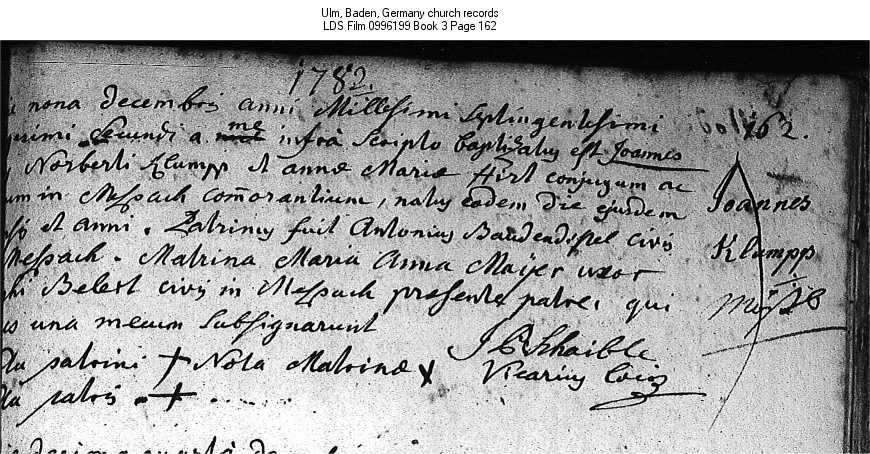 Ulm, Baden, Germany church records
LDS Film 0996199 Book 3 Page 162
1782.
nona decembris anni Millesimi Septingentesimi
162.
Secundi a me infra Scripto baptizatus est Joannes
Norberti Klumpp et annæ Mariæ Hirt conjugum ac
in Messach com̃orantium, natus eadem die ejusdem
et anni. Patrinus fuit Antonius Baudendistel civis
Messach. Matrina Maria Anna Maijer uxor
civis in Messach præsente patre, qui
una mecum subsignarunt
patrini + Nota Matrinæ x
patris +
Joannes
Klumpp
Vicarius Loci